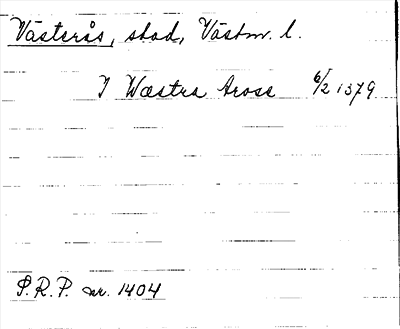 Västerås, stad, Västm. l.
J Wæstra Aross 6/2 1379
S.R.P. nr. 1404